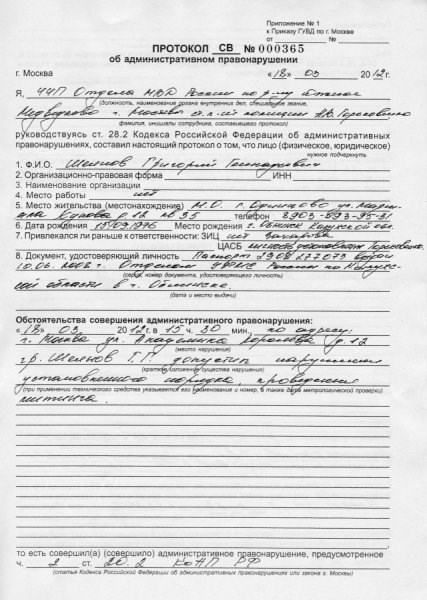 Приложение № 1
к Приказу ГУВД по г. Москве
от № 
ПРОТОКОЛ СВ № 000365
об административном правонарушении
г. Москва «18» 03 2012г.
Я, УУП Отдела МВД России по р-ну Южное
(должность, наименование органа внутренних дел, специальное звание,
Медведково г. Москвы полиции А.В.
фамилия, инициалы сотрудника, составившего протокол)
руководствуясь ст. 28.2 Кодекса Российской Федерации об административных
правонарушениях, составил настоящий протокол о том, что лицо (физическое, юридическое)
нужное подчеркнуть
1. Ф.И.О. Григорий Геннадьевич
2. Организационно-правовая форма ИНН
3. Наименование организации
4. Место работы нет
5. Место жительства (местонахождение) М.О. г. Одинцово ул. Мар-
шала Жукова д. кв 35 телефон 8903-593-95-31
6. Дата рождения 1976 Место рождения г. Обнинск Калужской обл.
7. Привлекался ли раньше к ответственности: ЗИЦ нет Захарова
ЦАСБ
8. Документ, удостоверяющий личность Паспорт 2908 277073 выдан
10.06.2008г. Отделом УФМС России по Калужс-
(серия, номер документа, удостоверяющего личность)
кой области в г. Обнинске.
(дата и место выдачи)
Обстоятельства совершения административного правонарушения:
«18» 03 2012г. в 15 ч. 30 мин., по адресу:
г. Москва ул. Академика Королева д. 12
(место нарушения)
гр. Г.Г. допустил нарушения
(краткое изложение существа нарушения)
установленного порядка проведения
(при применении технического средства указывается его наименование и номер, а также дата метрологической проверки)
митинга.
то есть совершил(а) (совершило) административное правонарушение, предусмотренное
ч. 2 ст. 20.2 КоАП РФ
(статья Кодекса Российской Федерации об административных правонарушениях или закона г. Москвы)